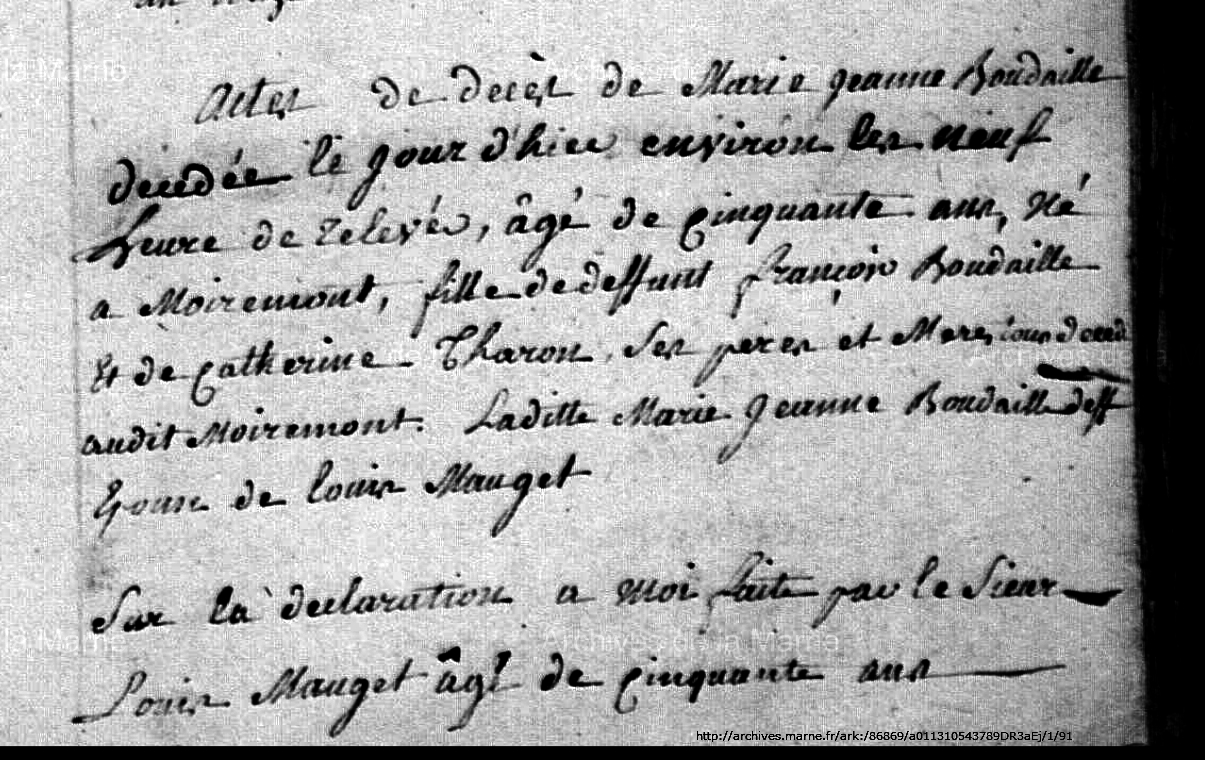 Actes de decès de Marie Jeanne Boudaille
decedée le jour d'hier environ les neuf
heure de relevés, âgé de cinquante ans, né
a Moiremont, fille de deffunt françois Boudaille
Et de Catherine Tharon, Ses peres et Meres tous deced
audit Moiremont. Laditte Marie Jeanne Boudaille deff
Epouse de louis Mauget
Sur la declaration a moi faite par le Sieur
Louis Mauget âgé de cinquante ans
http://archives.marne.fr/ark:/86869/a011310543789DR3aEj/1/91